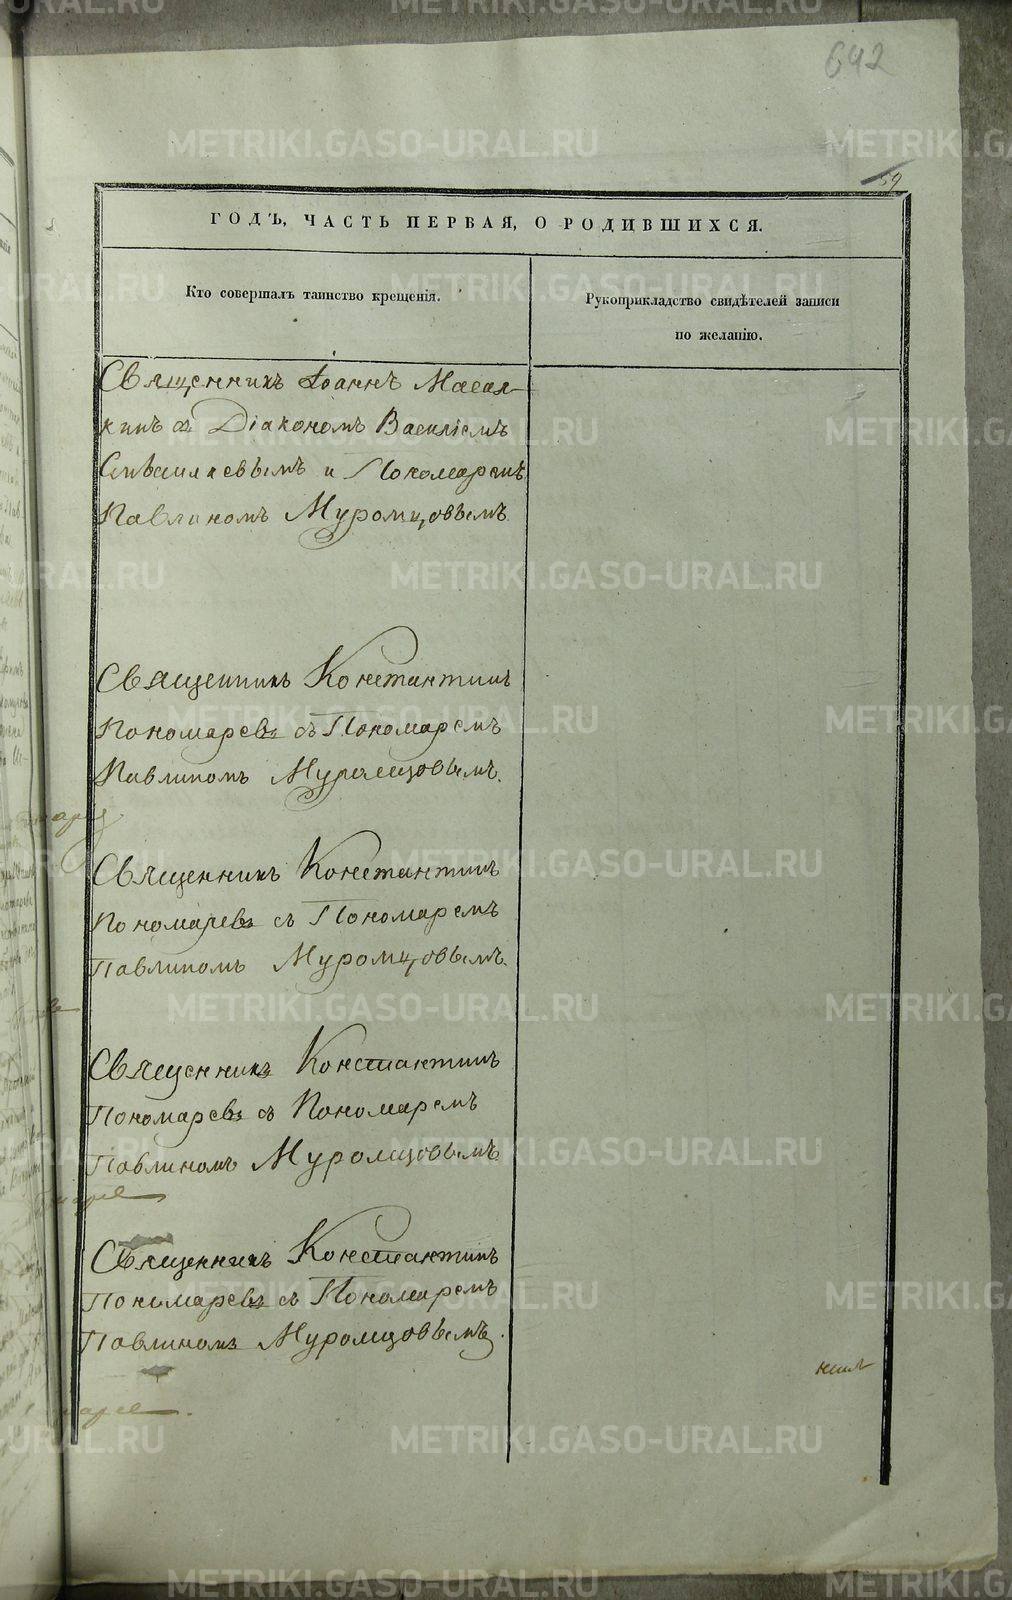 642
59
ГОДЪ, ЧАСТЬ ПЕРВАЯ, О РОДИВШИХСЯ.
Кто совершалъ таинство крещенія.
Рукоприкладство свидѣтелей записи
по желанію.
Священникъ Іоаннъ Масал-
кинъ съ Діакономъ Василіемъ
и Пономаремъ
Павлиномъ Муромцовымъ
Священникъ Константинъ
Пономаревъ съ Пономаремъ
Павлиномъ Муромцовымъ.
Священникъ Константинъ
Пономаревъ съ Пономаремъ
Павлиномъ Муромцовымъ.
Священникъ Константинъ
Пономаревъ съ Пономаремъ
Павлиномъ Муромцовымъ.
Священникъ Константинъ
Пономаревъ съ Пономаремъ
Павлиномъ Муромцовымъ.
METRIKI.GASO-URAL.RU